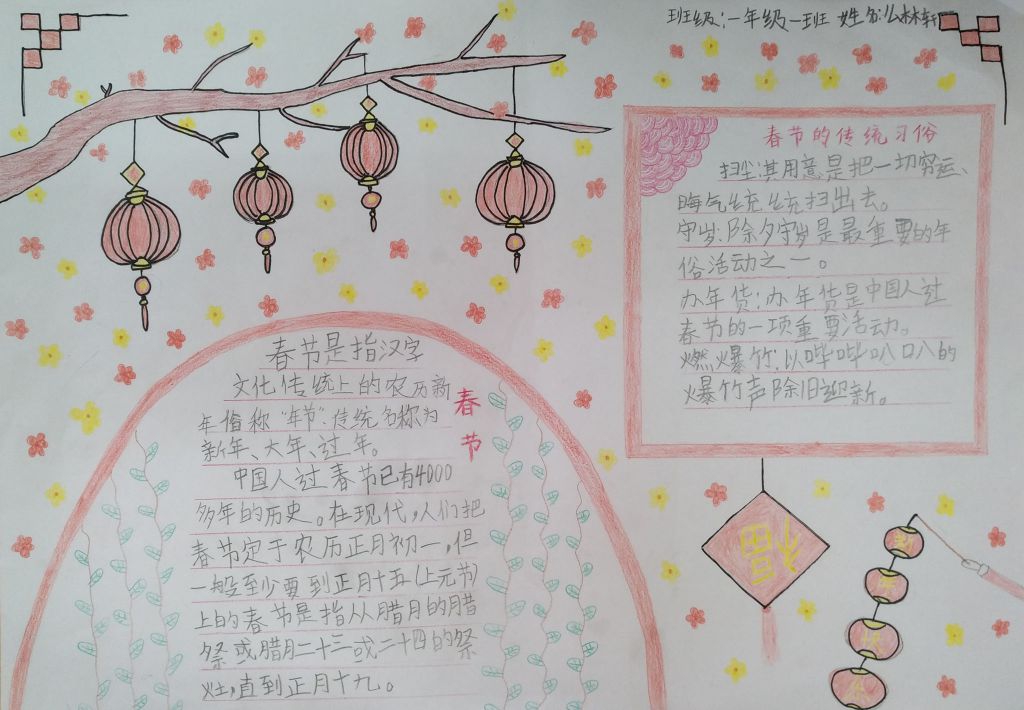 班级：一年级一班 姓名：么林轩
春节的传统习俗
扫尘：其用意是把一切穷运、
晦气统统扫出去。
守岁：除夕守岁是最重要的年
俗活动之一。
办年货：办年货是中国人过
春节的一项重要活动。
燃爆竹：以哔哔叭叭的
爆竹声除旧迎新。
春节是指汉字
文化传统上的农历新
年俗称“年节”传统名称为
新年、大年、过年。
中国人过春节已有4000
多年的历史。在现代，人们把
春节定于农历正月初一，但
一般至少要到正月十五（上元节）
上的春节是指从腊月的腊
祭或腊月二十三或二十四的祭
灶，直到正月十九。
春
节
福
新
年
快
乐